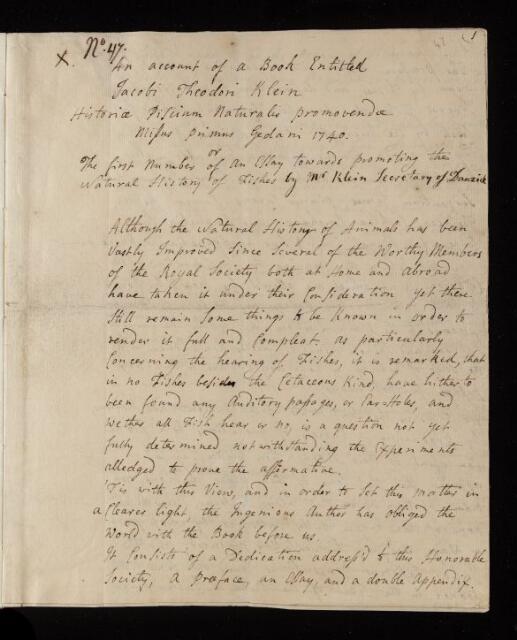 1
X. No. 47.
An account of a Book Entitled
Jacobi Theodori Klein
Historiæ Piscium Naturalis promovendæ
Missus primus Gedani 1740.
or
The first Number of an Essay towards promoting the
Natural History of Fishes by Mr Klein Secretary of Danzick
Although the Natural History of Animals has been
vastly Improved Since Several of the Worthy Members
of the Royal Society both at Home and abroad
have taken it under their Consideration yet there
Still remain Some things to be Known in order to
render it full and Compleat, as particularly
Concerning the hearing of Fishes, it is remarked, that
in no Fishes besides the Cetaceous Kind, have hitherto
been found any Auditory passages, or Ear-Holes, and
wether all Fish hear or no, is a question not yet
fully determined notwithstanding the Experiments
alledged to prove the affirmative.
'Tis with this View, and in order to Set this matter in
a Clearer light the Ingenious Author has obliged the
World with the Book before us.
It Consists of a Dedication address'd to this Honorable
Society, a Præface, an Essay, and a double Appendix.